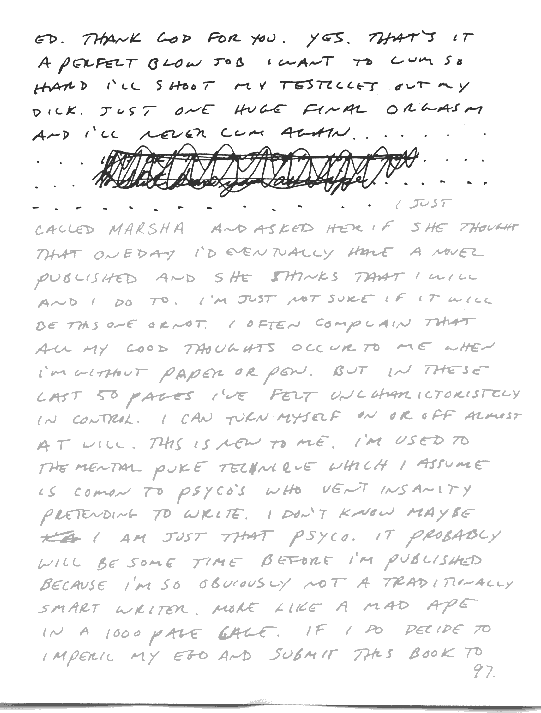 ED. THANK GOD FOR YOU. YES. THAT'S IT
A PERFELT BLOW JOB I WANT TO CUM SO
HARD I'LL SHOOT MY TESTICLES OUT MY
DICK. JUST ONE HUGE FINAL ORGASM
AND I'LL NEVER CUM AGAIN. . . . . . .
I JUST
CALLED MARSHA AND ASKED HER IF SHE THOUGHT
THAT ONE DAY I'D EVENTUALLY HAVE A NOVEL
PUBLISHED AND SHE THINKS THAT I WILL
AND I DO TO. I'M JUST NOT SURE IF IT WILL
BE THIS ONE OR NOT. I OFTEN COMPLAIN THAT
ALL MY GOOD THOUGHTS OCCUR TO ME WHEN
I'M WITHOUT PAPER OR PEN. BUT IN THESE
LAST 50 PAGES I'VE FELT UNCHARICTORISTELY
IN CONTROL. I CAN TURN MYSELF ON OR OFF ALMOST
AT WILL. THIS IS NEW TO ME. I'M USED TO
THE MENTAL PUKE TECHNIQUE WHICH I ASSUME
IS COMON TO PSYCO'S WHO VENT INSANITY
PRETENDING TO WRITE. I DON'T KNOW MAYBE
I AM JUST THAT PSYCO. IT PROBABLY
WILL BE SOME TIME BEFORE I'M PUBLISHED
BECAUSE I'M SO OBVIOUSLY NOT A TRADITIONALLY
SMART WRITER. MORE LIKE A MAD APE
IN A 1000 PAGE CAGE. IF I DO DECIDE TO
IMPERIL MY EGO AND SUBMIT THIS BOOK TO
97.